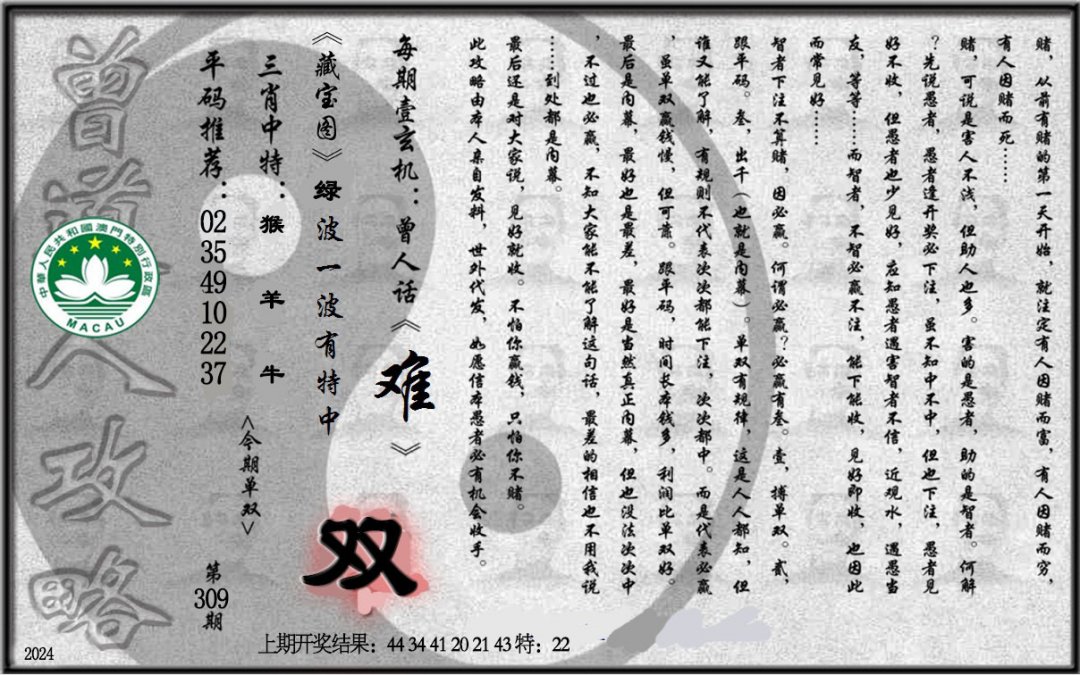 赌，从前有赌的第一天开始，就注定有人因赌而富，有人因赌而穷，
有人因赌而死……
赌，可说是害人不浅，但助人也多。害的是愚者，助的是智者。何解
？先说愚者，愚者逢开奖必下注，虽不知中不中，但也下注，愚者见
好不收，但愚者也少见好，应知愚者遇害智者不信，近观水，遇愚当
友，等等……而智者，不智必赢不注，能下能收，见好即收，也因此
而常见好……
智者下注不算赌，因必赢。何谓必赢？必赢有叁。壹，搏单双。贰，
跟平码。叁，出千（也就是内幕）。单双有规律，这是人人都知，但
谁又能了解，有规则不代表次次都能下注，次次都中。而是代表必赢
，虽单双赢钱慢，但可靠。跟平码，时间长本钱多，利润比单双好。
最后是内幕，最好也是最差，最好是当然真正内幕，但也没法次次中
，不过也必赢，不知大家能不能了解这句话，最差的相信也不用我说
……到处都是内幕。
最后还是对大家说，见好就收。不怕你赢钱，只怕你不赌。
此攻略由本人亲自发料，世外代发，如愿信本愚者必有机会收手。
每期壹玄机：曾人话《难》
《藏宝图》绿波一波有特中
双
三肖中特：猴羊牛
<今期单双>
平码推荐：02 35 49 10 22 37
第309期
曾道人攻略
中華人民共和國澳門特別行政區
MACAU
上期开奖结果：44 34 41 20 21 43 特：22
2024